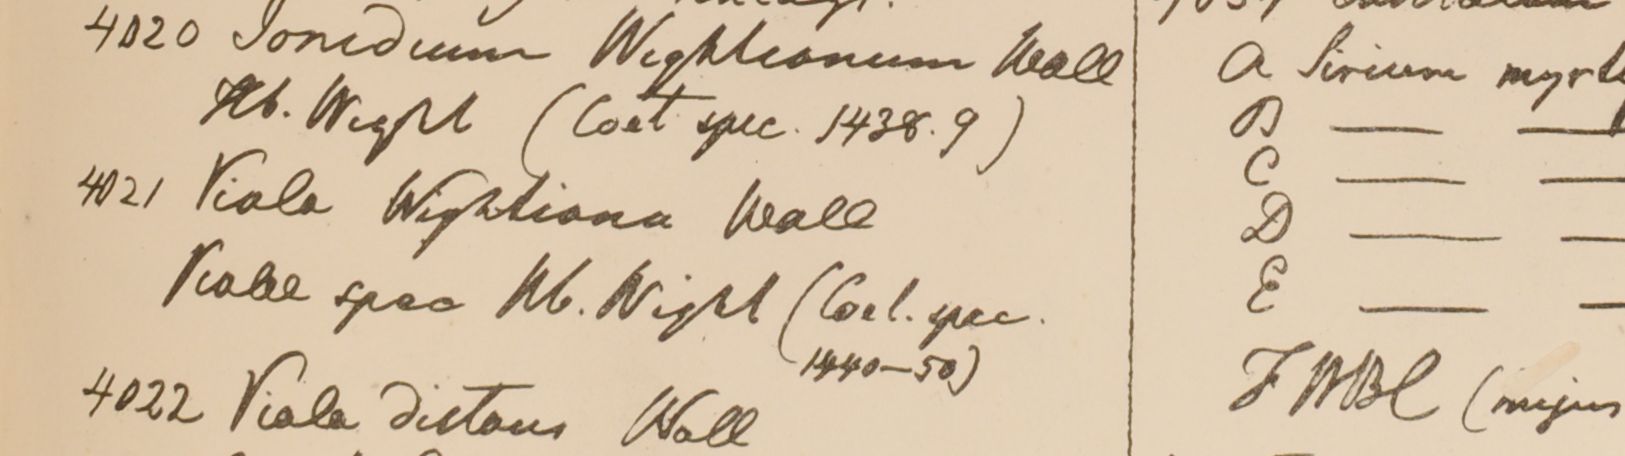 4020 Ionidium Wightianum Wall
Hb. Wight (Cat spec. 1438.9)
4021 Viola Wightiana Wall
Violae spec Hb. Wight (Cat. spec.
1440-50)
4022 Viola distans Wall
A Sirium
B — —
C — —
D — —
E — —
F HBC